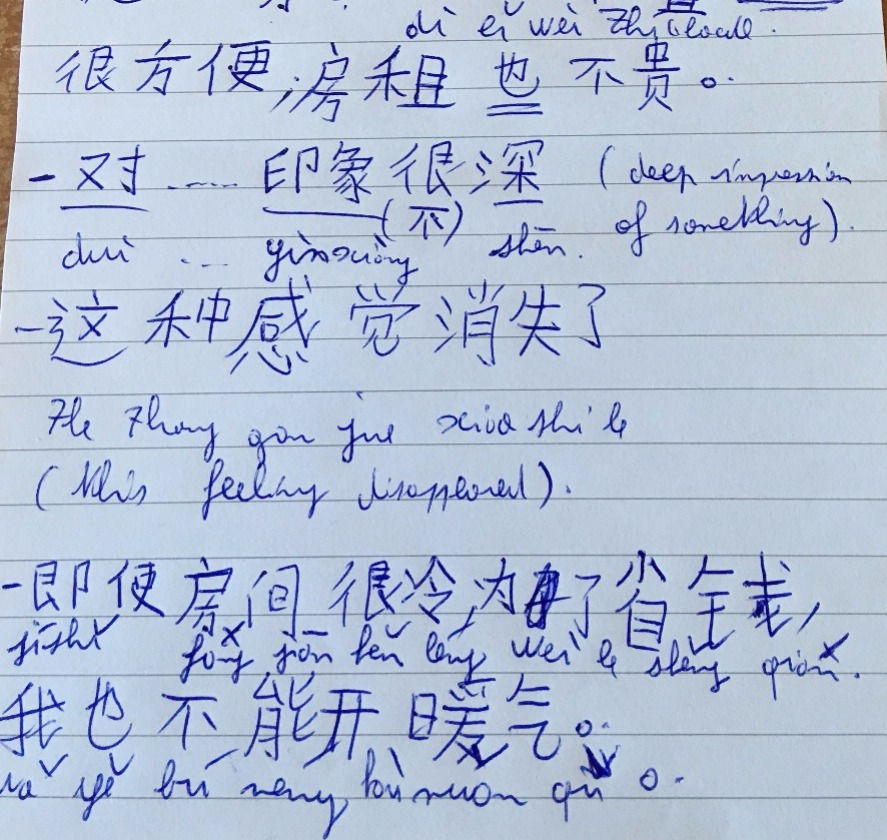 dì èi wèi zhi
很方便,房租也不贵。
- 对 ...... 印象很深 (deep impression
(不)
dui ... yìnxiàng shēn. of something).
- 这种感觉消失了
Zhe Zhong gan jue xiao shi le
(this feeling disappeared).
- 即便房间很冷,为了省钱,
jíshǐ fáng jiān hěn lěng wei le shěng qián.
我也不能开暖气。
wǒ yě bù neng kāi nuan qì o.